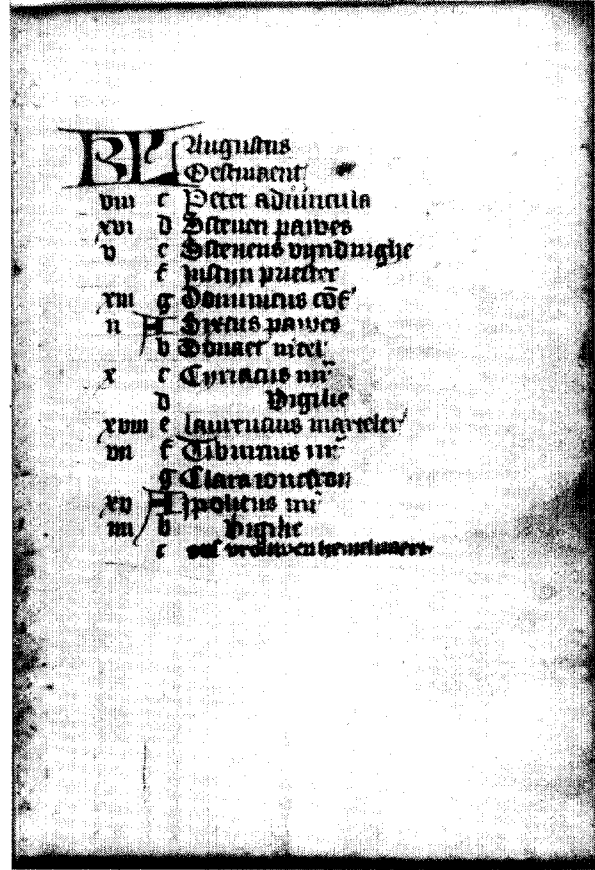 KL Augustus
Oestmaent
viii c Peter aduincula
xvi d Steuen pawes
v e Steuens vyndinghe
f Justijn priester
xiii g Dominicus
ii A Sixtus pawes
b Donaet
x c Cyriacus mr
d Vigilie
xviii e laurencius marteler
vii f Tiburcius mr
g Clara ioncfron
xv A ypolitus mr
iiii b Vigilie
c ons vrouwen hemelvaert